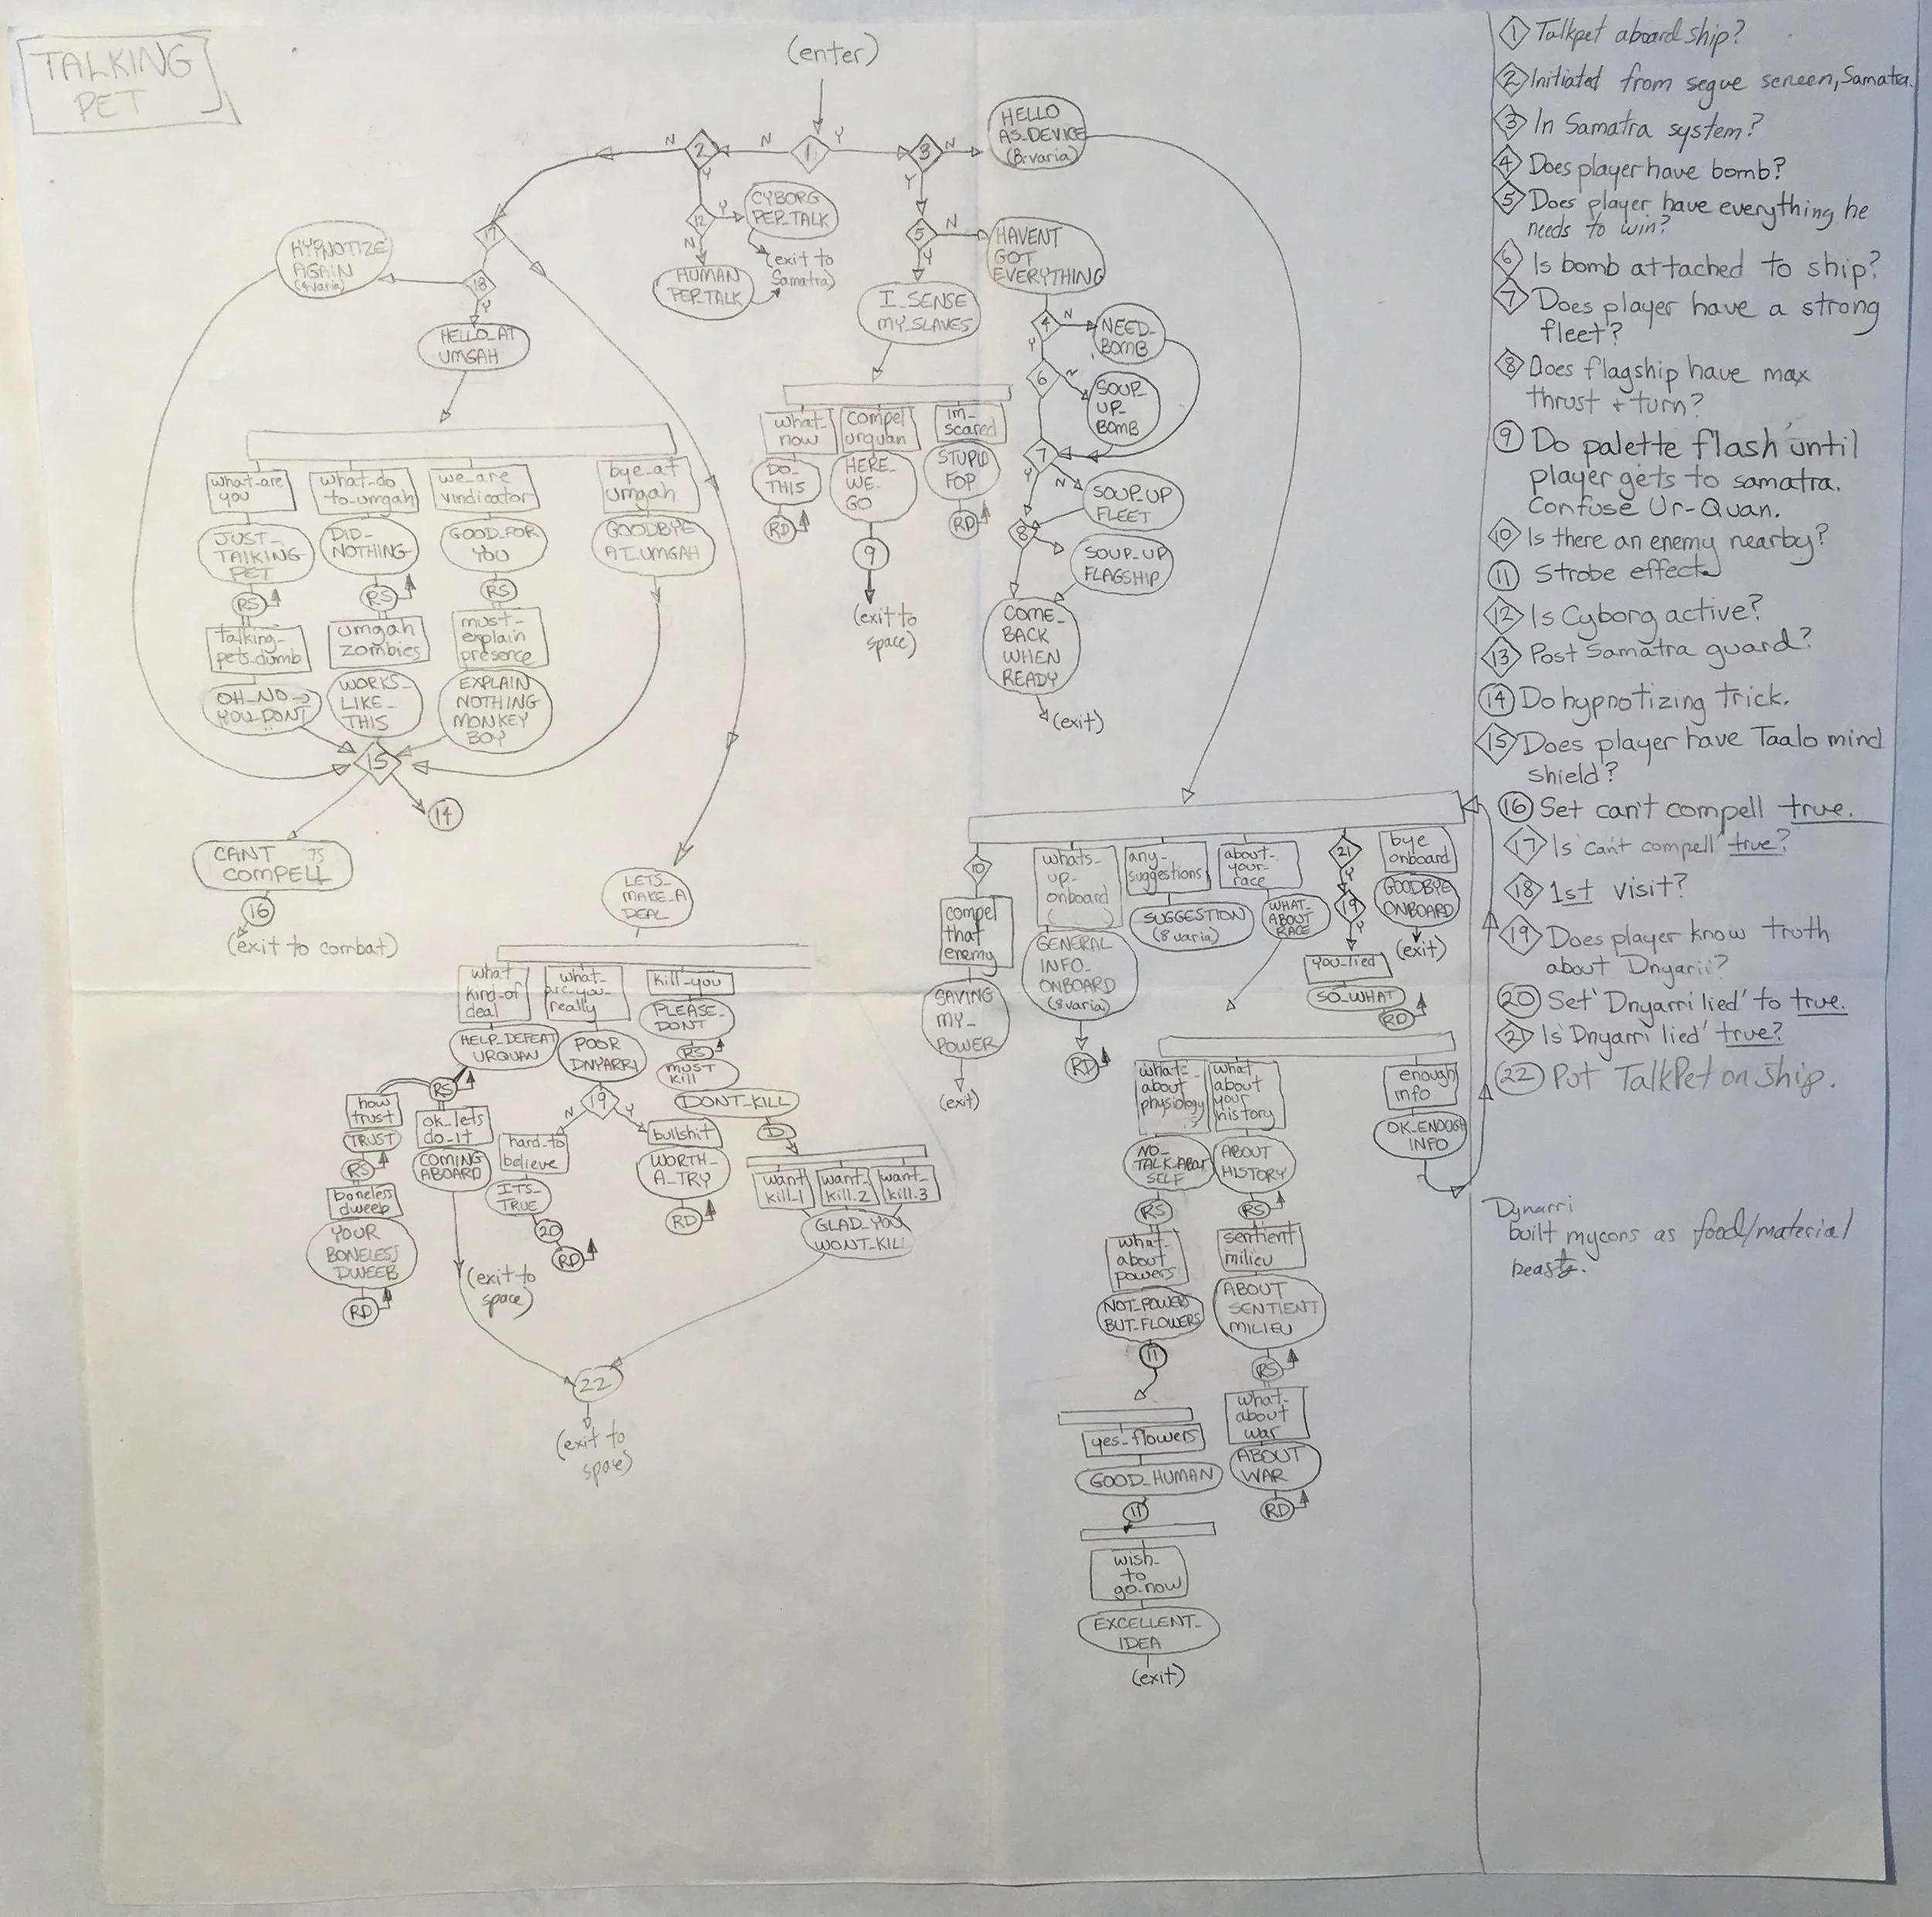 TALKING
PET
(enter)
N
2
N
1
Y
3
N
HELLO
AS_DEVICE
(8 varia)
Y
12
Y
CYBORG
PEP_TALK
N
HUMAN
PEP_TALK
(exit to
Samatra)
Y
5
N
HAVENT
GOT
EVERYTHING
Y
I_SENSE
MY_SLAVES
17
18
Y
HYPNOTIZE
AGAIN
(4 varia)
HELLO_AT
UMGAH
4
N
NEED_
BOMB
Y
6
N
SOUP_
UP_
BOMB
7
Y
N
SOUP_UP
FLEET
8
SOUP_UP
FLAGSHIP
COME_
BACK
WHEN
READY
(exit)
what_
now
DO_
THIS
RD
compel
urquan
HERE_
WE_
GO
9
(exit to
space)
im_
scared
STUPID
FOP
RD
what_are
you
JUST_
TALKING
PET
RS
talking_
pets_dumb
OH_NO_
YOU_DONT
what_do
to_umgah
DID_
NOTHING
RS
umgah
zombies
WORKS_
LIKE_
THIS
we_are
vindicator
GOOD_FOR
YOU
RS
must_
explain
presence
EXPLAIN
NOTHING
MONKEY
BOY
bye_at
umgah
GOODBYE
AT_UMGAH
15
14
CANT
COMPELL
16
(exit to combat)
LETS_
MAKE_A
DEAL
what
kind_of
deal
HELP_DEFEAT
URQUAN
RS
how
trust
TRUST
RS
boneless
dweeb
YOUR
BONELESS
DWEEB
RD
ok_lets
do_it
COMING
ABOARD
(exit to
space)
what_
are_you_
really
POOR
DNYARRI
19
N
Y
hard_to
believe
ITS_
TRUE
20
RD
bullshit
WORTH_
A_TRY
RD
kill_you
PLEASE_
DONT
RS
must
kill
DONT_KILL
D
want
kill_1
want_
kill_2
want_
kill_3
GLAD_YOU
WONT_KILL
22
(exit to
space)
10
compel
that
enemy
SAVING
MY_
POWER
(exit)
whats_
up_
onboard
GENERAL
INFO_
ONBOARD
(8 varia)
RD
any_
suggestions
SUGGESTION
(8 varia)
about_
your_
race
WHAT_
ABOUT
RACE
21
Y
19
Y
you_lied
SO_WHAT
RD
bye
onboard
GOODBYE
ONBOARD
(exit)
what_
about
physiology
NO_
TALK_ABOUT
SELF
RS
what_
about
powers
NOT_POWERS
BUT_FLOWERS
11
yes_flowers
GOOD_HUMAN
11
wish_
to
go_now
EXCELLENT_
IDEA
(exit)
what
about
your
history
ABOUT
HISTORY
RS
sentient
milieu
ABOUT
SENTIENT
MILIEU
RS
what_
about
war
ABOUT
WAR
RD
enough
info
OK_ENOUGH
INFO
1 Talkpet aboard ship?
2 Initiated from segue screen, Samatra.
3 In Samatra system?
4 Does player have bomb?
5 Does player have everything he
needs to win?
6 Is bomb attached to ship?
7 Does player have a strong
fleet?
8 Does flagship have max
thrust + turn?
9 Do palette flash until
player gets to samatra.
Confuse Ur-Quan.
10 Is there an enemy nearby?
11 Strobe effect
12 Is Cyborg active?
13 Post Samatra guard?
14 Do hypnotizing trick.
15 Does player have Taalo mind
shield?
16 Set can't compell true.
17 Is 'can't compell' true?
18 1st visit?
19 Does player know truth
about Dnyarii?
20 Set 'Dnyarri lied' to true.
21 Is 'Dnyarri lied' true?
22 Put TalkPet on ship.
Dynarri
built mycons as food/material
beasts.